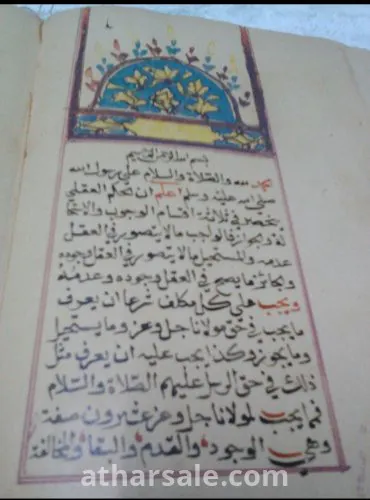 بسم الله الرحمن الرحيم
الحمد لله والصلاة والسلام على رسول الله
صلى الله عليه وسلم اعلم ان الحكم العقلي
ينحصر في ثلاثة اقسام الوجوب والاستحا
لة والجواز فالواجب ما لا يتصور في العقل
عدمه والمستحيل ما لا يتصور في العقل وجوده
والجائز ما يصح في العقل وجوده وعدمه
ويجب على كل مكلف شرعا ان يعرف
ما يجب في حق مولانا جل وعز وما يستحيل
وما يجوز وكذا يجب عليه ان يعرف مثل
ذلك في حق الرسل عليهم الصلاة والسلام
فمما يجب لمولانا جل وعز عشرون صفة
وهي الوجود والقدم والبقاء والمخالفة
atharsale.com